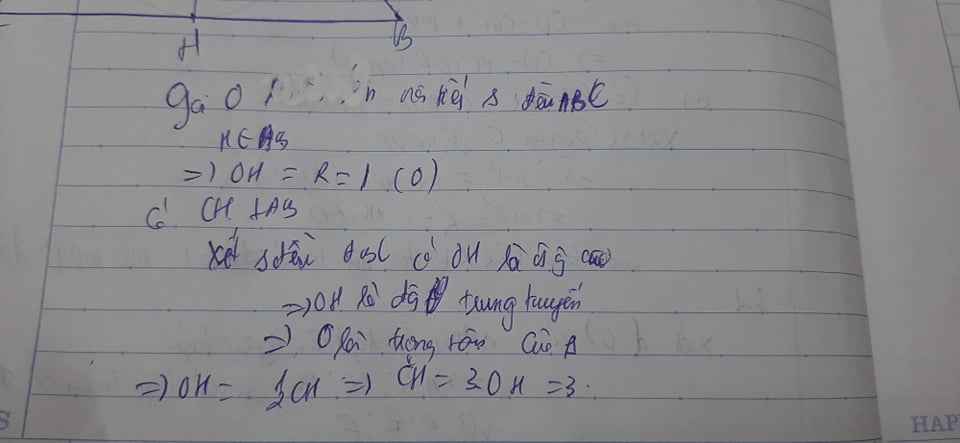 H B
Gọi O nội tiếp Δ đều ABC
H ∈ AB
=) OH = R = 1 (O)
Có CH ⊥ AB
Xét Δ đều ABC có OH là đg cao
=) OH là đg trung tuyến
=) O là trọng tâm của Δ
=) OH = CH =) CH = 3.OH = 3.
S HAP